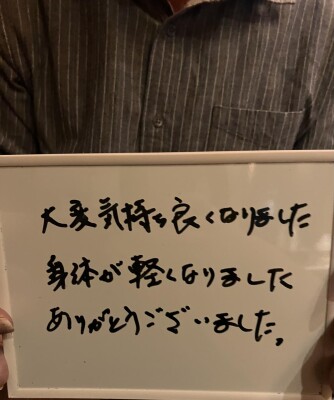 大変気持ち良くなりました
身体が軽くなりました
ありがとうございました。